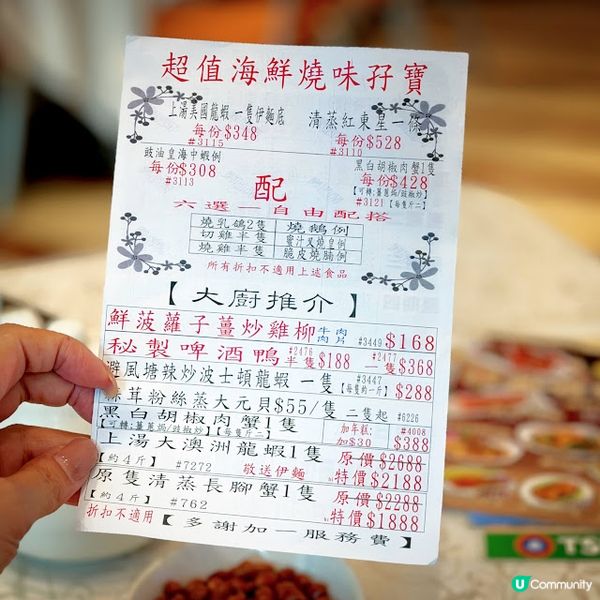 超值海鮮燒味孖寶
上湯美國龍蝦一隻伊麵底
每份$348
#3115
清蒸紅東星一條
每份$528
#3110
豉油皇海中蝦例
每份$308
#3113
黑白胡椒肉蟹1隻
每份$428
【可轉:薑蔥焗/豉椒炒】
#3121【每隻斤二】
配
六選一自由配搭
燒乳鴿2隻 燒鵝例
切雞半隻 蜜汁叉燒皇例
燒雞半隻 脆皮燒腩例
所有折扣不適用上述食品
【大廚推介】
鮮菠蘿子薑炒雞柳 牛肉 肉片 #3449 $168
秘製啤酒鴨 #2476 半隻$188 #2477 一隻$368
避風塘辣炒波士頓龍蝦 一隻 #3447 【每隻約一斤】 $288
蒜茸粉絲蒸大元貝$55/隻 二隻起 #6226
黑白胡椒肉蟹1隻 加年糕: #4008
【可轉:薑蔥焗/豉椒炒】【每隻斤二】 加$30 $388
上湯大澳洲龍蝦1隻 原價$2688
【約4斤】 #7272 敬送伊麵 特價$2188
原隻清蒸長腳蟹1隻 原價$2288
【約4斤】 #762 特價$1888
折扣不適用【多謝加一服務費】
TS
U Community